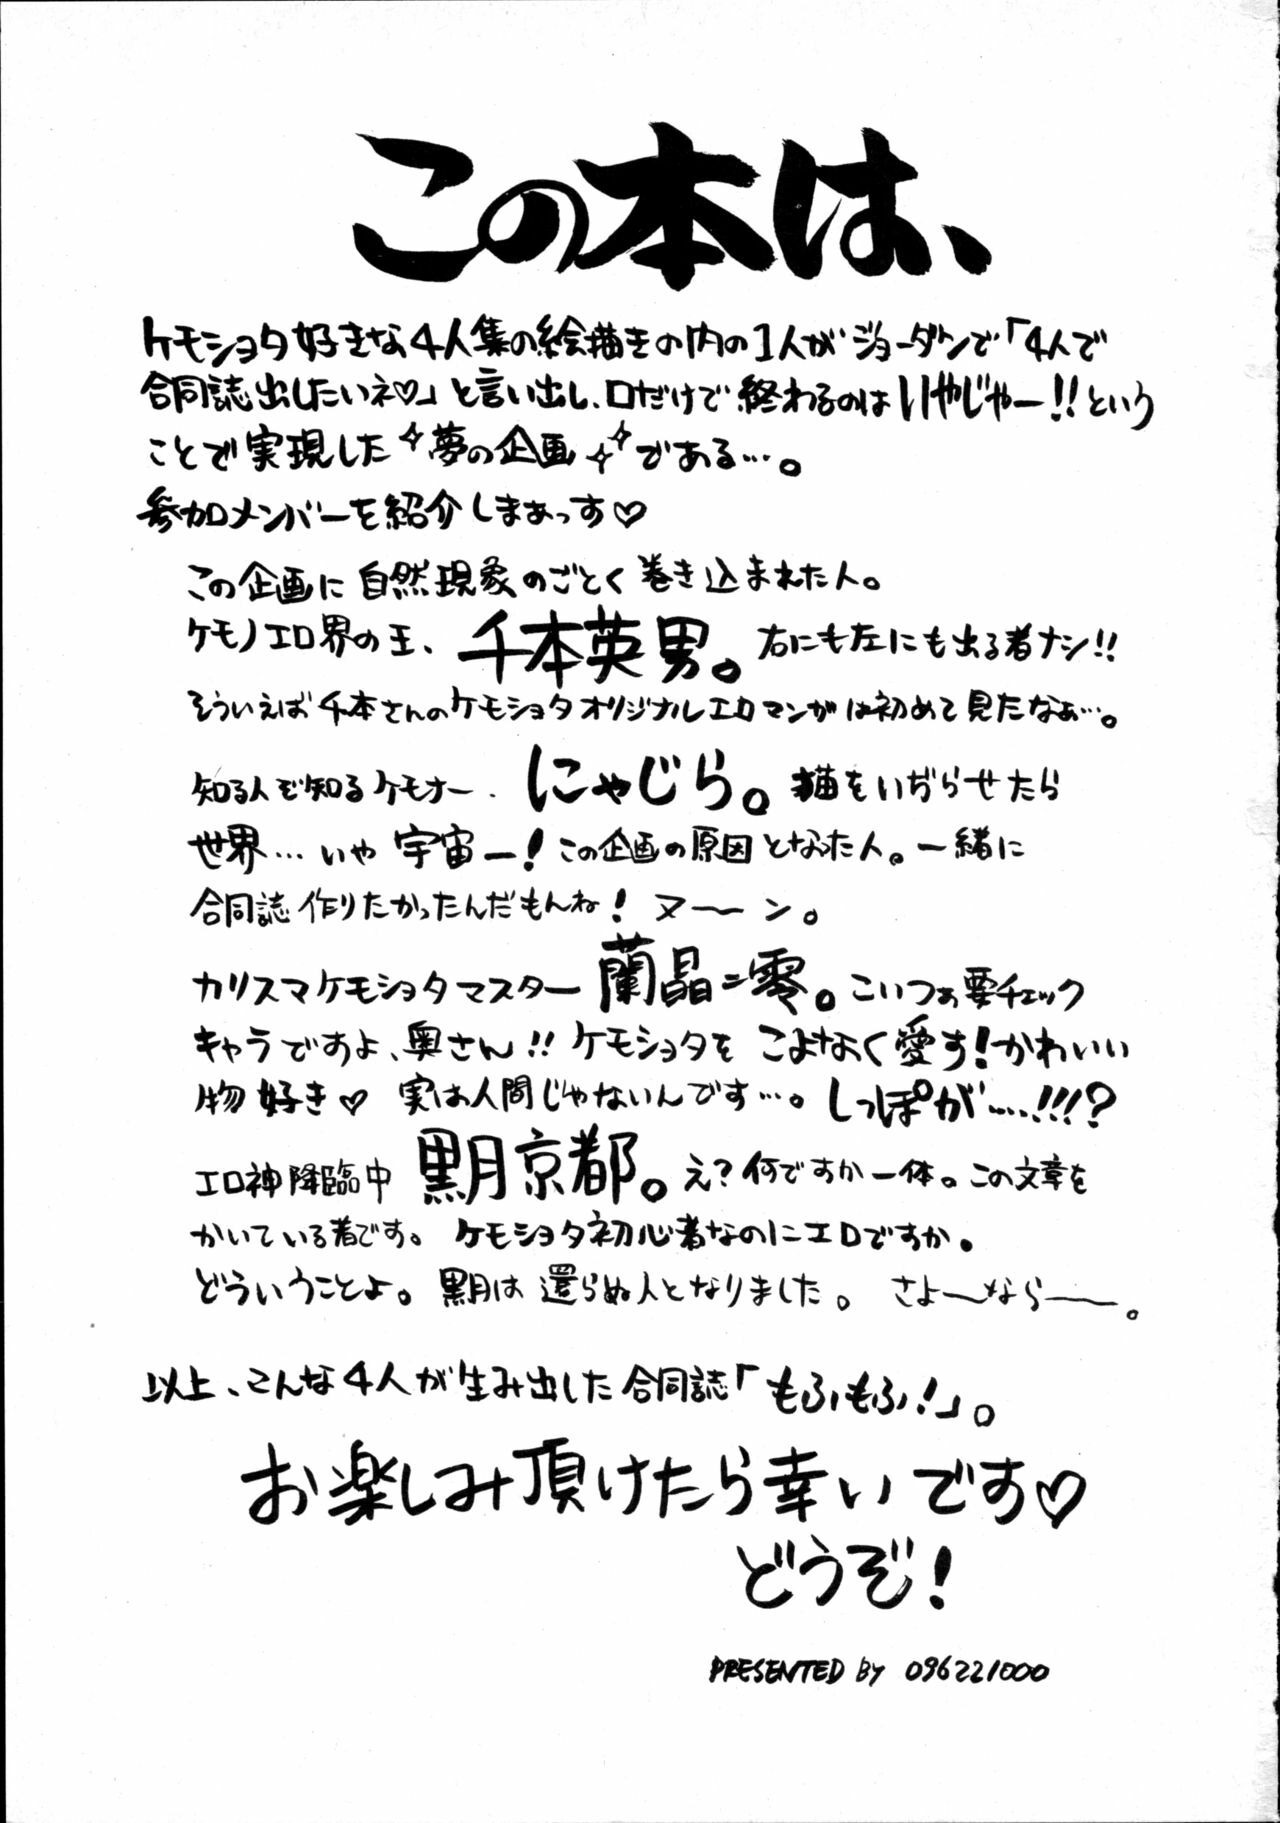 この本は、
ケモショタ好きな4人集の絵描きの内の1人がジョーダンで「4人で
合同誌出したいネ♡」と言い出し、口だけで終わるのはいやじゃー!!という
ことで実現した✧夢の企画✧✧である…。
参加メンバーを紹介しまぁっす♡
この企画に自然現象のごとく巻き込まれた人。
ケモノエロ界の王、千本英男。右にも左にも出る者ナシ!!
そういえば千本さんのケモショタオリジナルエロマンガは初めて見たなぁ…。
知る人ぞ知るケモナー.にゃじら。猫をいぢらせたら
世界…いや宇宙一!この企画の原因となった人。一緒に
合同誌作りたかったんだもんね!ヌ〜〜ン。
カリスマケモショタマスター蘭晶=零。こいつぁ要チェック
キャラですよ、奥さん!!ケモショタをこよなく愛す!かわいい
物好き♡実は人間じゃないんです…。しっぽが….!!!?
エロ神降臨中黒月京都。え?何ですか一体。この文章を
かいている者です。ケモショタ初心者なのにエロですか。
どういうことよ。黒月は還らぬ人となりました。さよ〜なら〜。
以上、こんな4人が生み出した合同誌「もふもふ!」。
お楽しみ頂けたら幸いです♡
どうぞ!
PRESENTED BY 096221000